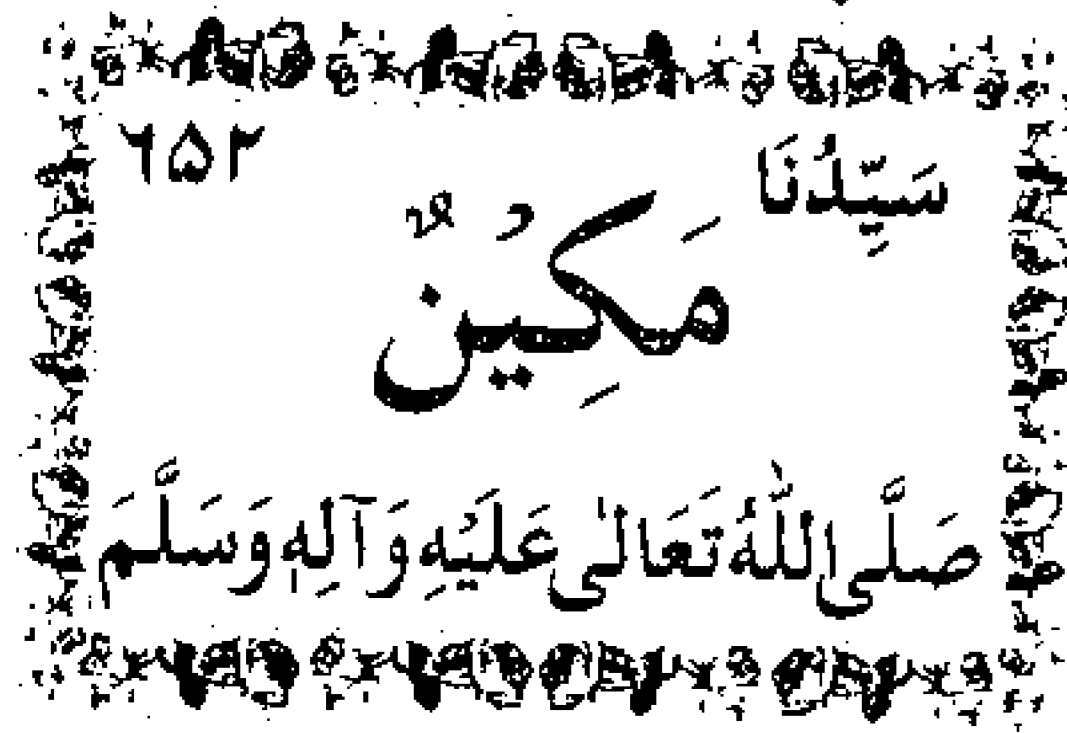 سَيِّدُنَا ٦۵۲
مَكِيْنٌ
صَلَّى اللّٰهُ تَعَالٰى عَلَيْهِ وَآلِهٖ وَسَلَّمَ